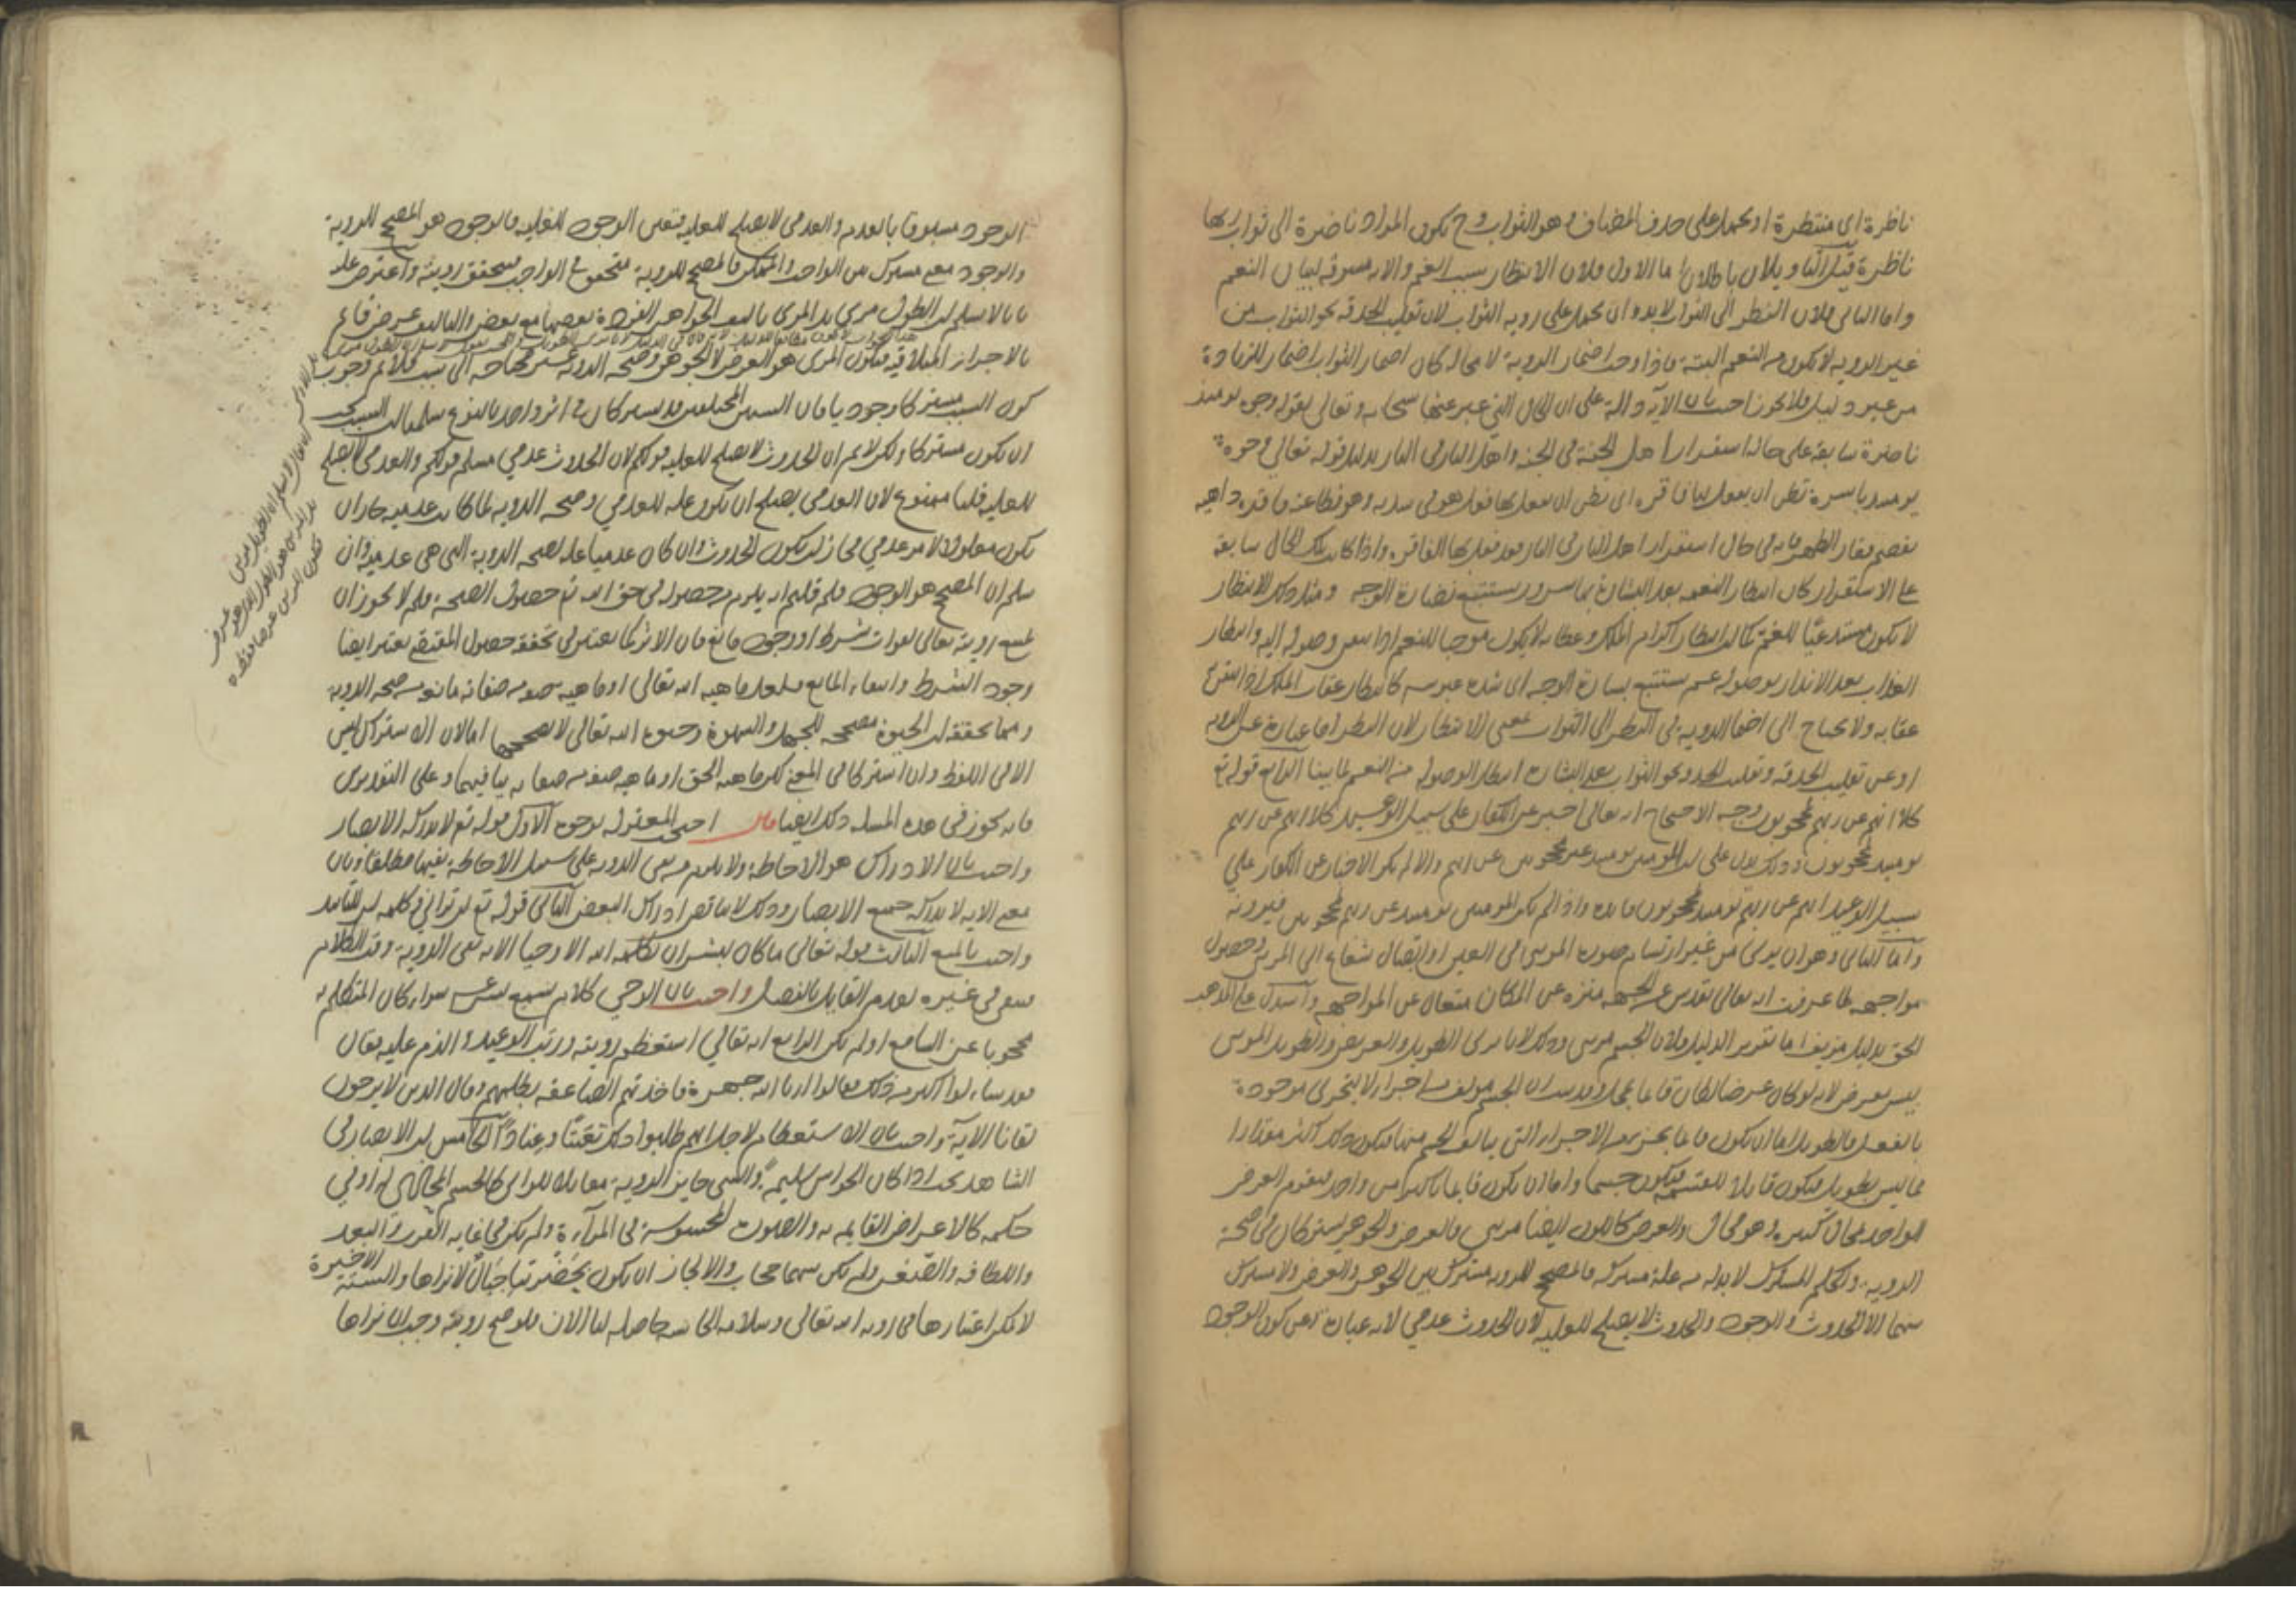 ناظرة اى منتظرة او يحمل على حذف المضاف وهو الثواب وح يكون المراد ناضرة الى ثواب ربها
ناظرة قيل التاويلان باطلان اما الاول فلان الانتظار سبب الغم والاية مسوقة لبيان النعم
واما الثانى فلان النظر الى الثواب لابد وان يحمل على روية الثواب لان تقليب الحدقة نحو الثواب من
غير الروية لا يكون من النعم البتة فاذا وجب اضمار الروية لا محالة كان اضمار الثواب اضمار للزيادة
من غير دليل فلا يجوز اجيب بان الآية دالة على ان الحال التي عبر عنها سبحانه وتعالى بقوله وجوه يومئذ
ناضرة سابقة على حالة استقرار اهل الجنة فى الجنة واهل النار فى النار بدليل قوله تعالى وجوه
يومئذ باسرة تظن ان يفعل بها فاقرة اى تظن ان يفعل بها فعل هو فى شدته وفظاعته فاقرة داهية
تقصم فقار الظهر فانه فى حال استقرار اهل النار فى النار قد فعل بها الفاقرة واذا كان تلك الحال سابقة
على الاستقرار كان انتظار النعمة بعد البشارة بها سرور يستتبع نضارة الوجه ومثل ذلك الانتظار
لا يكون مستدعيا للغم كما ان انتظار اكرام الملك وعطائه لا يكون موجبا للغم اذا تيقن وصوله اليه وانتظار
العذاب بعد الانذار بوصوله غم يستتبع بسارة الوجه اى شدة عبوسه كانتظار عقاب الملك اذا تيقن
عقابه ولا يحتاج الى اضمار الروية فى النظر الى الثواب بمعنى الانتظار لان النظر اما عبارة عن الروية
او عن تقليب الحدقة وتقليب الحدقة نحو الثواب بعد البشارة انتظار الوصول من النعم لما بينا الرابع قوله تع
كلا انهم عن ربهم لمحجوبون وجه الاحتجاج انه تعالى اخبر عن الكفار على سبيل الوعيد كلا انهم عن ربهم
يومئذ لمحجوبون وذلك يدل على ان المومنين يومئذ غير محجوبين عن ربهم والا لم يكن الاخبار عن الكفار على
سبيل الوعيد انهم عن ربهم يومئذ لمحجوبون فائدة واذا لم يكن المومنين يومئذ عن ربهم محجوبين فيرونه
واما الثانى وهو ان يرى من غير ارتسام صورة المرئى فى العين او اتصال شعاع الى المرئى وحصول
مواجهة لما عرفت انه تعالى تقدس عن الجهة منزه عن المكان متعال عن المواجهة واستدل على مذهب
الحق بدليل مزيف اما تقرير الدليل فلان الجسم مرئى وذلك لانا نرى الطويل والعريض والطويل المرئى
ليس بعرض لانه لو كان عرضا لكان قائما بمحل وقد ثبت ان الجسم مولف من اجزاء لا يتجزى موجودة
بالفعل فالطول اما ان يكون قائما بجزء من الاجزاء التى يتالف الجسم منها فيكون ذلك اكثر مقدارا
مما ليس بطويل فيكون قابلا للقسمة فيكون جسما واما ان يكون قائما باكثر من واحد فيقوم العرض
الواحد بمحال كثيرة وهو محال والعرض كاللون ايضا مرئى فالعرض والجوهر يشتركان فى صحة
الروية والحكم المشترك لابد له من علة مشتركة فالمصحح للروية مشترك بين الجوهر والعرض ولا مشترك
بينهما الا الحدوث والوجود والحدوث لا يصلح للعلية لان الحدوث عدمى لانه عبارة عن كون الوجود
الوجود مسبوقا بالعدم والعدمى لا يصلح للعلية فتعين الوجود للعلية فالوجود هو المصحح للروية
والوجود معنى مشترك بين الواجب والممكن فالمصحح للروية متحقق فى الواجب فيتحقق رويته واعترض عليه
بانا لا نسلم ان الطويل مرئى بل المرئى تاليف الجواهر الفردة بعضها مع بعض والتاليف عرض قائم
بالاجزاء المتلاقية فيكون المرئى هو العرض لا الجوهر وصحة الروية غير محتاجة الى سبب فلا نم وجوب
كون السبب مشتركا وجوديا فان السببين المختلفين قد يشتركان فى اثر واحد بالنوع سلمنا ان السبب يجب
ان يكون مشتركا ولكن لا نم ان الحدوث لا يصلح للعلية قولكم لان الحدوث عدمى مسلم قولكم والعدمى لا يصلح
للعلية قلنا ممنوع لان العدمى يصلح ان يكون علة للعدمى وصحة الروية لما كانت عدمية جاز ان
يكون معلولا لامر عدمى فجاز ان يكون الحدوث وان كان عدميا علة لصحة الروية التى هى عدمية وان
سلم ان المصحح هو الوجود فلم قلتم انه يلزم من حصوله فى حق الله تع حصول الصحة ولم لا يجوز ان
يمتنع رويته تعالى لفوات شرط او وجود مانع فان الاثر كما يعتبر فى تحققه حصول المقتضى يعتبر ايضا
وجود الشرط وانتفاء المانع فلعل ماهية الله تعالى او ماهية صفة من صفاته مانعة من صحة الروية
ومما يحققه ان الحيوة مصححة للجهل والشهوة وحيوة الله تعالى لا تصححهما اما لان الاشتراك ليس
الا فى اللفظ وان اشتركا فى المعنى لكن ماهية الحق او ماهية صفة من صفاته ينافيهما وعلى التقديرين
فانه يجوز فى هذه المسئلة ذلك ايضا قال احتج المعتزلة بوجوه الاول قوله تع لا يدركه الابصار
واجيب بان الادراك هو الاحاطة ولا يلزم من نفى الروية على سبيل الاحاطة نفيها مطلقا وبان
معنى الاية لا يدركه جميع الابصار وذلك لا يناقض ادراك البعض الثانى قوله تع لن ترانى كلمة لن للتابيد
واجيب بالمنع الثالث قوله تعالى ما كان لبشر ان يكلمه الله الا وحيا الاية نفى الروية وقت الكلام
فينفى فى غيره لعدم القايل بالفصل واجيب بان الوحى كلام يسمع بسرعة سواء كان المتكلم به
محجوبا عن السامع او لم يكن الرابع انه تعالى استعظم رويته ورتب الوعيد والذم عليه فقال
فقد سالوا اكبر من ذلك فقالوا ارنا الله جهرة فاخذتهم الصاعقة بظلمهم وقال الذين لا يرجون
لقاءنا الاية واجيب بان الاستعظام لاجل انهم طلبوا ذلك تعنتا وعنادا الخامس ان الابصار فى
الشاهد يجب اذا كان الحواس سليمة والشى جايز الروية مقابلا للرائى كالجسم المحاذى له او فى
حكمه كالاعراض القايمة به والصورة المحسوسة فى المرآة ولم يكن فى غاية القرب والبعد
واللطافة والصغر ولم يكن بينهما حجاب والا لجاز ان يكون بحضرتنا جبال لا نراها والستة الاخيرة
لا يمكن اعتبارها فى روية الله تعالى وسلامة الحاسة حاصلة لنا الان فلو صح رويته وجب ان نراها